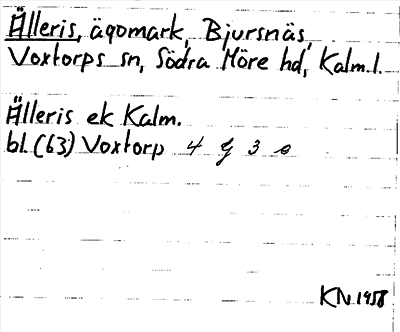 Älleris, ägomark, Bjursnäs,
Voxtorps sn, Södra Möre hd, Kalm.l.
Älleris ek Kalm.
bl. (63) Voxtorp 4 g 3 e
KN 1958